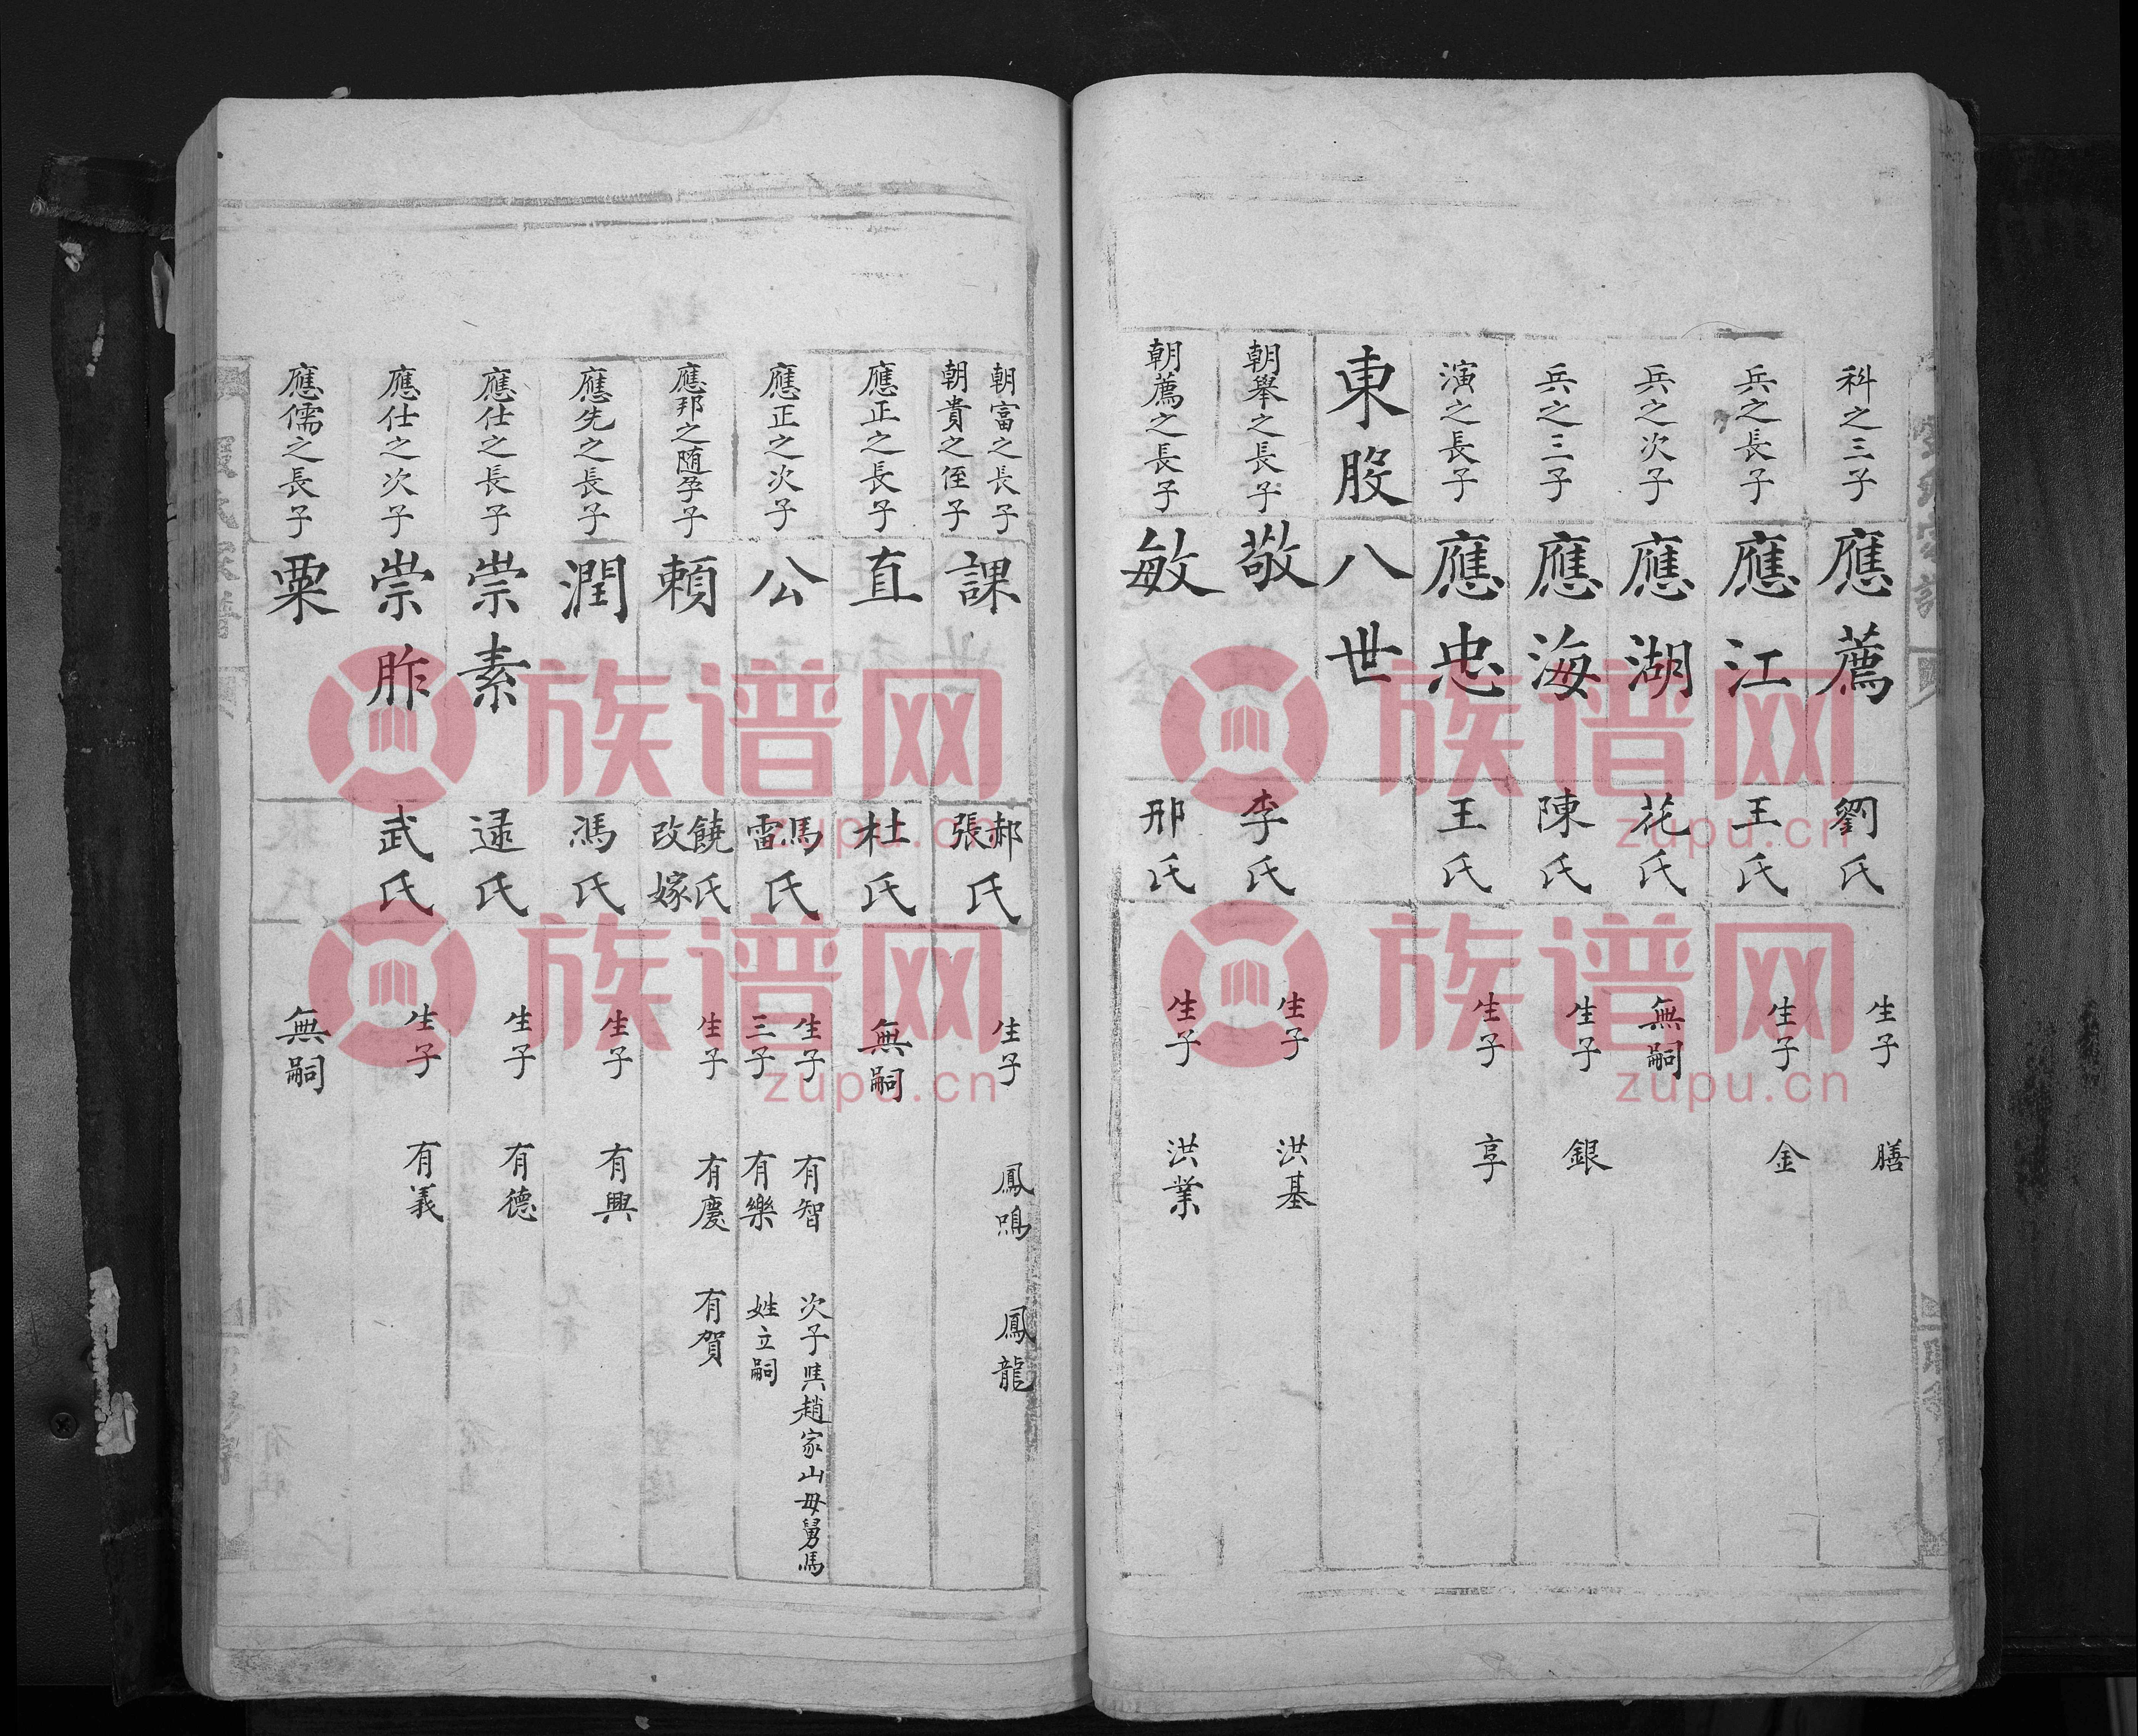 科之三子 應薦 劉氏 生子 膳
兵之長子 應江 王氏 生子 金
兵之次子 應湖 花氏 無嗣
兵之三子 應海 陳氏 生子 銀
演之長子 應忠 王氏 生子 享
東股八世
朝舉之長子 敬 李氏 生子 洪基
朝薦之長子 敏 邢氏 生子 洪業
朝富之長子 朝貴之侄子 課 郝張氏 生子 鳳鳴 鳳龍
應正之長子 直 杜氏 無嗣
應正之次子 公 馬雷氏 生子三子 有智 有樂 次子 趙家山母舅馮姓立嗣
應邦之随孕子 賴 饒氏改嫁 生子 有慶 有賀
應先之長子 潤 馮氏 生子 有興
應仕之長子 崇素 逯氏 生子 有德
應仕之次子 崇胙 武氏 生子 有義
應儒之長子 粟 無嗣
族谱网
zupu.cn
族谱网
zupu.cn
族谱网
zupu.cn
族谱网
zupu.cn